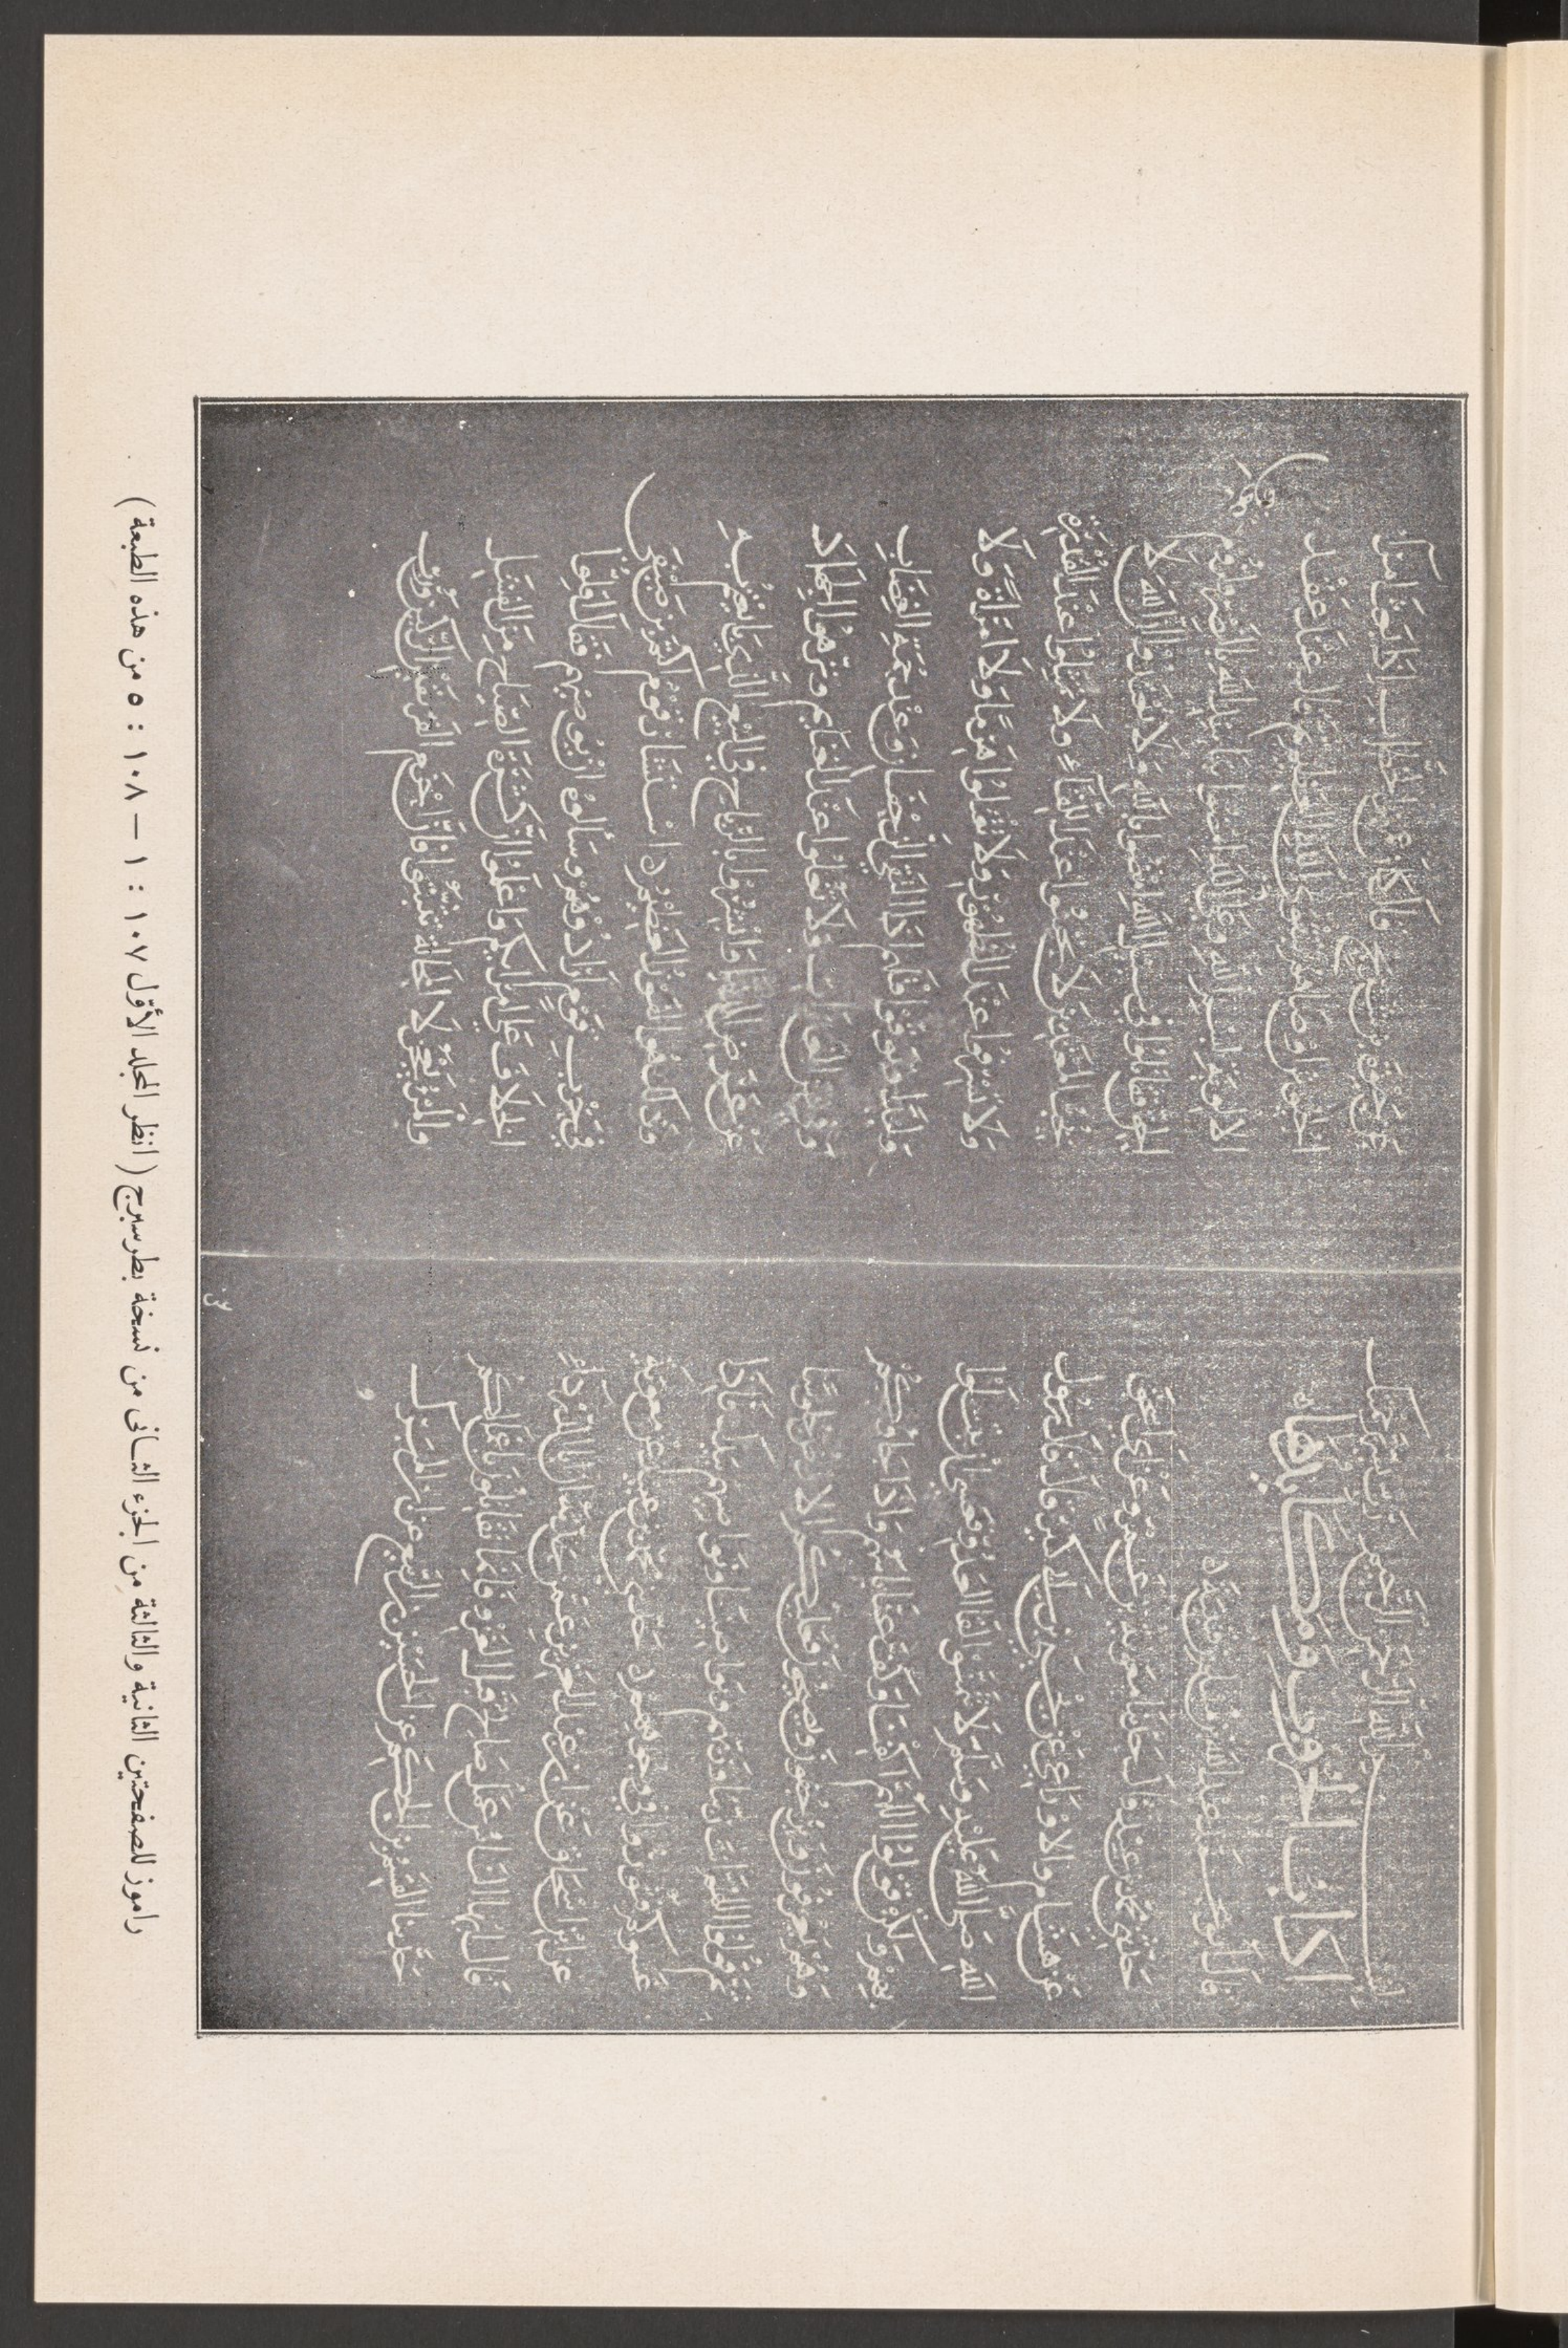 بسم الله الرحمن الرحيم رب يسر برحمتك
كتاب الحرب ومكايدها
قال ابو محمد عبد الله بن مسلم بن قتيبة
حدثني محمد بن عبيد قال حدثنا معوية بن عمرو عن ابي اسحق
عن هشام والاوزاعي عن يحيى بن ابي كثير قال قال رسول
الله صلى الله عليه وسلم لا تمنوا لقاء العدو فعسى ان تبتلوا
بهم ولكن قولوا اللهم اكفنا وكف عنا باسهم واذا جاؤكم
وهم يعزفون ويزحفون ويصيحون فعليكم الارض جلوسا
ثم قولوا اللهم انت ربنا وربهم ونواصينا ونواصيهم بيدك فاذا
غشوكم فثوروا في وجوههم حدثني محمد بن عبيد عن معوية
عن ابي اسحاق عن سعيد بن عبد العزيز عمن حدثه ان ابا الدرداء
قال ايها الناس عمل صالح قبل الغزو فانما تقاتلون باعمالكم
حدثنا القسم بن الحكم عن الحسن بن الربيع عن ابن المبارك
عن حيوة بن شريح قال كان عمر بن الخطاب اذا بعث امراء
الجيوش اوصاهم بتقوى الله العظيم ثم قال عند عقد
الالوية بسم الله وعلى عون الله امضوا بتاييد الله بالنصر ولزوم
الحق فقاتلوا في سبيل الله من كفر بالله ولا تعتدوا ان الله لا
يحب المعتدين لا تجبنوا عند اللقاء ولا تمثلوا عند القدرة
ولا تسرفوا عند الظهور ولا تقتلوا هرما ولا امراة ولا
وليدا وتوقوا قتلهم اذا التقى الزحفان وعند حمة النهضات
وفي شن الغارات ولا تغلوا عند الغنايم ونزهوا الجهاد
عن عرض الدنيا وابشروا بالرباح في البيع الذي بايعتم به
وذلك هو الفوز العظيم استشار قوم اكثم بن صيفي
في حرب قوم ارادوهم وسالوه ان يوصيهم فقال اقلوا
الخلاف على امرائكم واعلموا ان كثرة الصياح من الفشل
والمرء يعجز لا المحالة تثبتوا فان احزم الفريقين الركين ورب
راموز للصفحتين الثانية والثالثة من الجزء الثانى من نسخة بطرسبرج ( انظر المجلد الأوّل ١٠٧ : ١ — ١٠٨ : ٥ من هذه الطبعة )